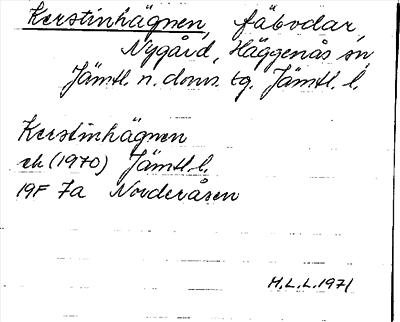 Kerstinhägnen, fäbodar,
Nygård, Häggenås sn,
Jämtl. n. doms. tg. Jämtl. l.
Kerstinhägnen
ek (1970) Jämtl. l.
19F 7a Norderåsen
H.L.L. 1971